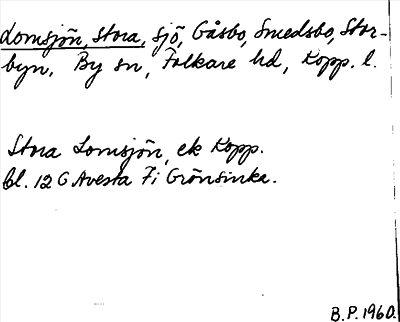 Lomsjön, Stora, sjö, Gåsbo, Smedsbo, Stor-
byn, By sn, Folkare hd, Kopp. l.
Stora Lomsjön, ek Kopp.
bl. 12 G Avesta 7i Grönsinka.
B.P. 1960.